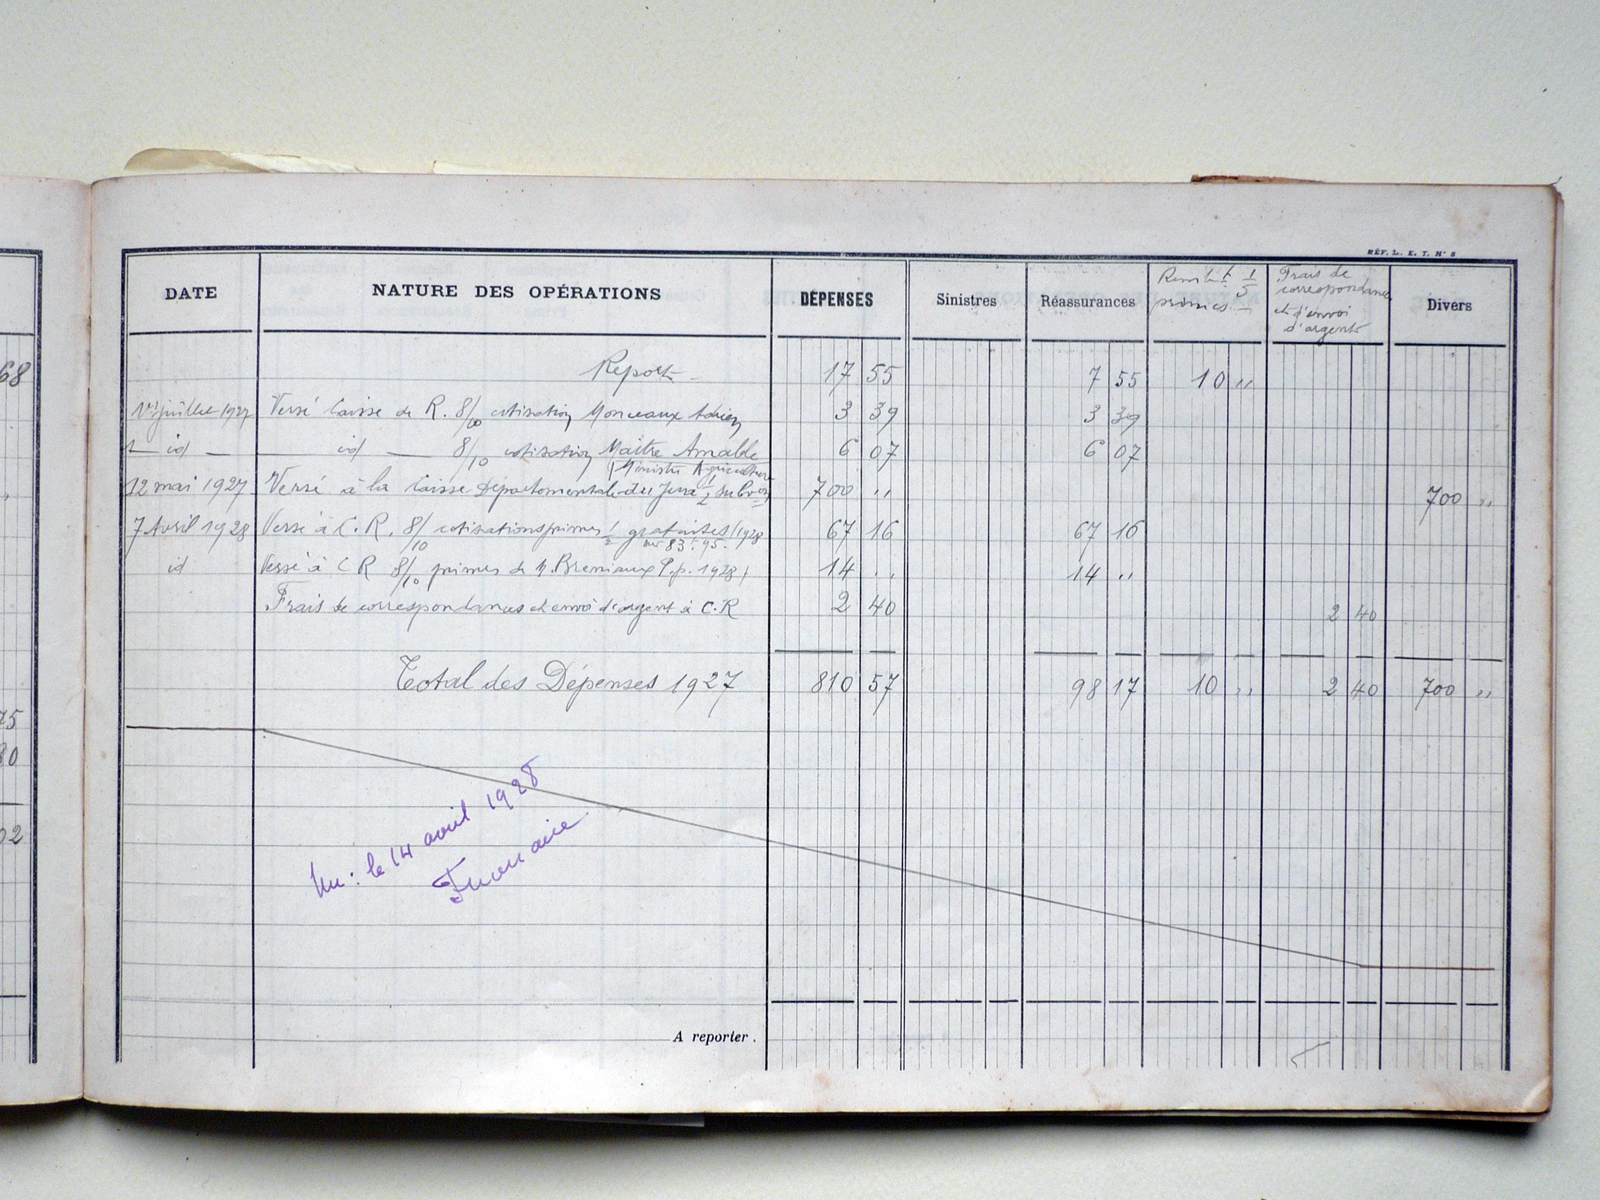 68
75
80
02
RÉF. L. E. T. N° 8
DATE NATURE DES OPÉRATIONS DÉPENSES Sinistres Réassurances primes 1/5 Frais de correspondance et d'envoi d'argent Divers
Report 17 55 7 55 10 "
1er juillet 1927 Versé Caisse de R. 8/10 cotisation Monceaux Adrien 3 39 3 39
id id 8/10 cotisation Maitre Amable 6 07 6 07
(Ministre Agriculture
12 mai 1927 Versé à la Caisse Départementale du Jura 700 " 700 "
7 Avril 1928 Versé à C. R. 8/10 cotisations primes gratuites 1928 67 16 67 16
83 95.
id Versé à C R 8/10 primes de M. P.p. 1928 14 " 14 "
Frais de correspondances et envoi d'argent à C.R 2 40 2 40
Total des Dépenses 1927 810 57 98 17 10 " 2 40 700 "
Vu : le 14 avril 1928
A reporter .